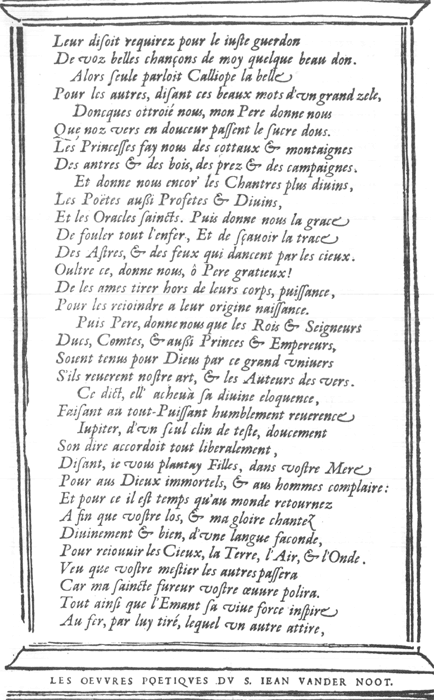 Leur disoit requirez pour le iuste guerdon
De voz belles chançons de moy quelque beau don.
Alors seule parloit Calliope la belle
Pour les autres, disant ces beaux mots d'vn grand zele,
Doncques ottroié nous, mon Pere donne nous
Que noz vers en douceur passent le sucre dous.
Les Princesses fay nous des cottaux & montaignes
Des antres & des bois, des prez & des campaignes.
Et donne nous encor' les Chantres plus diuins,
Les Poëtes aussi Profetes & Diuins,
Et les Oracles saincts. Puis donne nous la grace
De fouler tout l'enfer, Et de sçauoir la trace
Des Astres, & des feux qui dancent par les cieux.
Oultre ce, donne nous, ò Pere gratieux!
De les ames tirer hors de leurs corps, puissance,
Pour les reioindre a leur origine naissance.
Puis Pere, donne nous que les Rois & Seigneurs
Ducs, Comtes, & aussi Princes & Empereurs,
Soient tenus pour Dieus par ce grand vniuers
S'ils reuerent nostre art, & les Auteurs des vers.
Ce dict, ell' acheua sa diuine eloquence,
Faisant au tout-Puissant humblement reuerence
Iupiter, d'vn seul clin de teste, doucement
Son dire accordoit tout liberalement,
Disant, ie vous plantay Filles, dans vostre Mere
Pour aus Dieux immortels, & aus hommes complaire:
Et pour ce il est temps qu'au monde retournez
A fin que vostre los, & ma gloire chantez
Diuinement & bien, d'vne langue faconde,
Pour reiouir les Cieux, la Terre, l'Air, & l'Onde.
Veu que vostre mestier les autres passera
Car ma saincte fureur vostre œuure polira.
Tout ainsi que l'Emant sa viue force inspire
Au fer, par luy tiré, lequel vn autre attire,
LES OEVVRES POETIQVES DV S. IEAN VANDER NOOT.